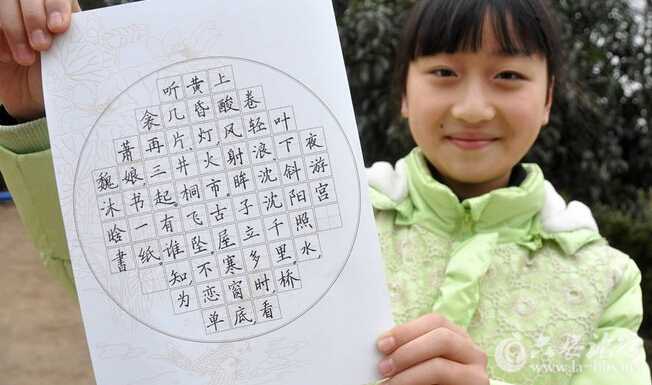 夜游宫
叶下斜阳照水，
卷轻浪沈沈千里，桥
上酸风射眸子，立多时，看
黄昏，灯火市，古屋寒窗底，
听几片，井桐飞坠，不恋单
衾再三起，有谁知，为
萧娘，书一纸，